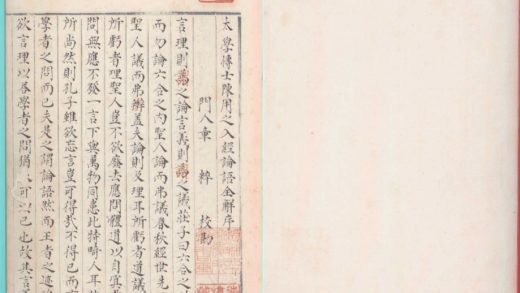 太學博士陳用之入經論語全解序
門人章 粹 校勘
言理則謂之論言義則謂之議莊子曰六合之
而勿論六合之內聖人論而弗議春秋經世先
聖人議而弗辨蓋夫論則及理耳所虧者道議
所虧者理聖人豈不欲廢去應問體道以自冥
問無應不發一言下與萬物同患此特畸人耳
所尚然則孔子雖欲忘言豈可得哉不得已而
學者之問而已夫是之謂論語然而王者之迹
欲言理以答學者之問猶 可以已也故其言